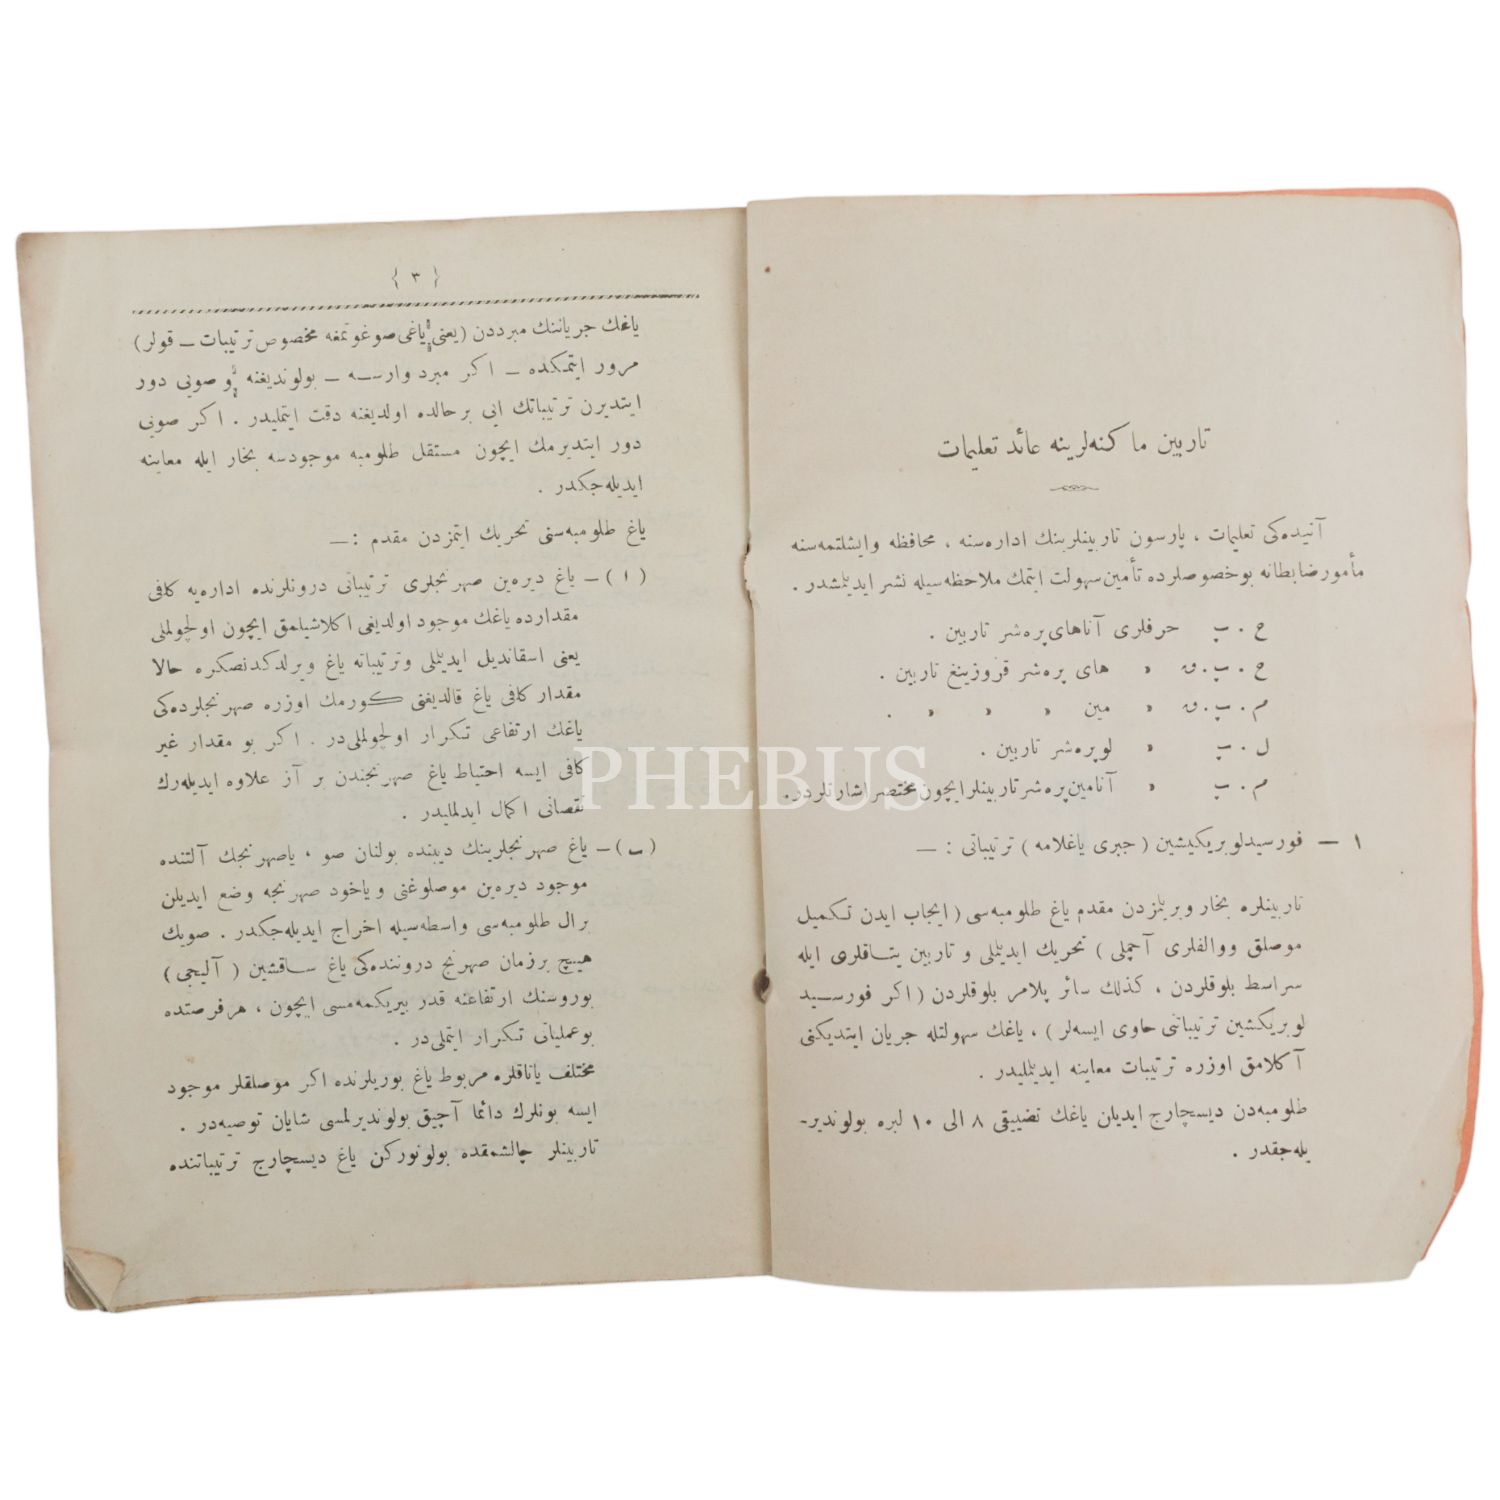 تاربین ماكنه‌لرینه عائد تعلیمات
آتیده‌كی تعلیمات ، پارسون تاربینلرینك اداره‌سنه ، محافظه وایشلتمه‌سنه
مأمور ضابطانه بوخصوصلرده تأمین سهولت ایتمك ملاحظه‌سیله نشر ایدیلمشدر .
ح . پ حرفلری آناهای پره‌شر تاربین .
ح . پ . ق » های پره‌شر قروزینغ تاربین .
م . پ . ق » مین » » » .
ل . پ » لوپره‌شر تاربین .
م . پ » آنامین پره‌شر تاربینلر ایچون مختصر اشارتلردر .
١ — فورسیدلوبریكیشین ( جبری یاغلامه ) ترتیباتی : —
تاربینلره بخار ویریلمزدن مقدم یاغ طلومبه‌سی ( ایجاب ایدن تكمیل
موصلق ووالفلری آچملی ) تحریك ایدیلملی و تاربین یتاقلری ایله
سراسط بلوقلردن ، كذلك سائر پلامر بلوقلردن ( اكر فورسید
لوبریكشین ترتیباتنی حاوی ایسه‌لر ) ، یاغك سهولتله جریان ایتدیكنی
آكلامق اوزره ترتیبات معاینه ایدیلملیدر .
طلومبه‌دن دیسچارج ایدیان یاغك تضییقی ٨ الی ١٠ لبره بولوندیر-
یله‌جقدر .
{ ٣ }
یاغك جریاننك مبرددن ( یعنی یاغی صوغوتمغه مخصوص ترتیبات — قولر )
مرور ایتمكده — اكر مبرد وارسه — بولوندیغنه و صویی دور
ایتدیرن ترتیباتك ایی برحالده اولدیغنه دقت ایتملیدر . اكر صویی
دور ایتدیرمك ایچون مستقل طلومبه موجودسه بخار ایله معاینه
ایدیله‌جكدر .
یاغ طلومبه‌سنی تحریك ایتمزدن مقدم : —
( ١ ) — یاغ دیره‌ین صهرنجلری ترتیباتی درونلرنده اداره‌یه كافی
مقدارده یاغك موجود اولدیغی اكلاشیلمق ایچون اولچولملی
یعنی اسقاندیل ایدیلملی وترتیباته یاغ ویرلدكدنصكره حالا
مقدار كافی یاغ قالدیغنی كورمك اوزره صهرنجلرده‌كی
یاغك ارتفاعی تكرار اولچولملی‌در . اكر بو مقدار غیر
كافی ایسه احتیاط یاغ صهرنجندن بر آز علاوه ایدیله‌رك
نقصانی اكمال ایدلملیدر .
( ب ) — یاغ صهرنجلرینك دیبنده بولنان صو ، یاصهرنجك آلتنده
موجود دیره‌ین موصلوغنی ویاخود صهرنجه وضع ایدیلن
برال طلومبه‌سی واسطه‌سیله اخراج ایدیله‌جكدر . صویك
هیچ برزمان صهرنج دروننده‌كی یاغ ساقشین ( آلیجی )
بوروسنك ارتفاعنه قدر بیریكمه‌مسی ایچون ، هرفرصتده
بوعملیاتی تكرار ایتملی‌در .
مختلف یاتاقلره مربوط یاغ بوریلرنده اكر موصلقلر موجود
ایسه بونلرك دائما آچیق بولوندیرلمسی شایان توصیه‌در .
تاربینلر چالشمقده بولونوركن یاغ دیسچارج ترتیباتنده
PHEBUS